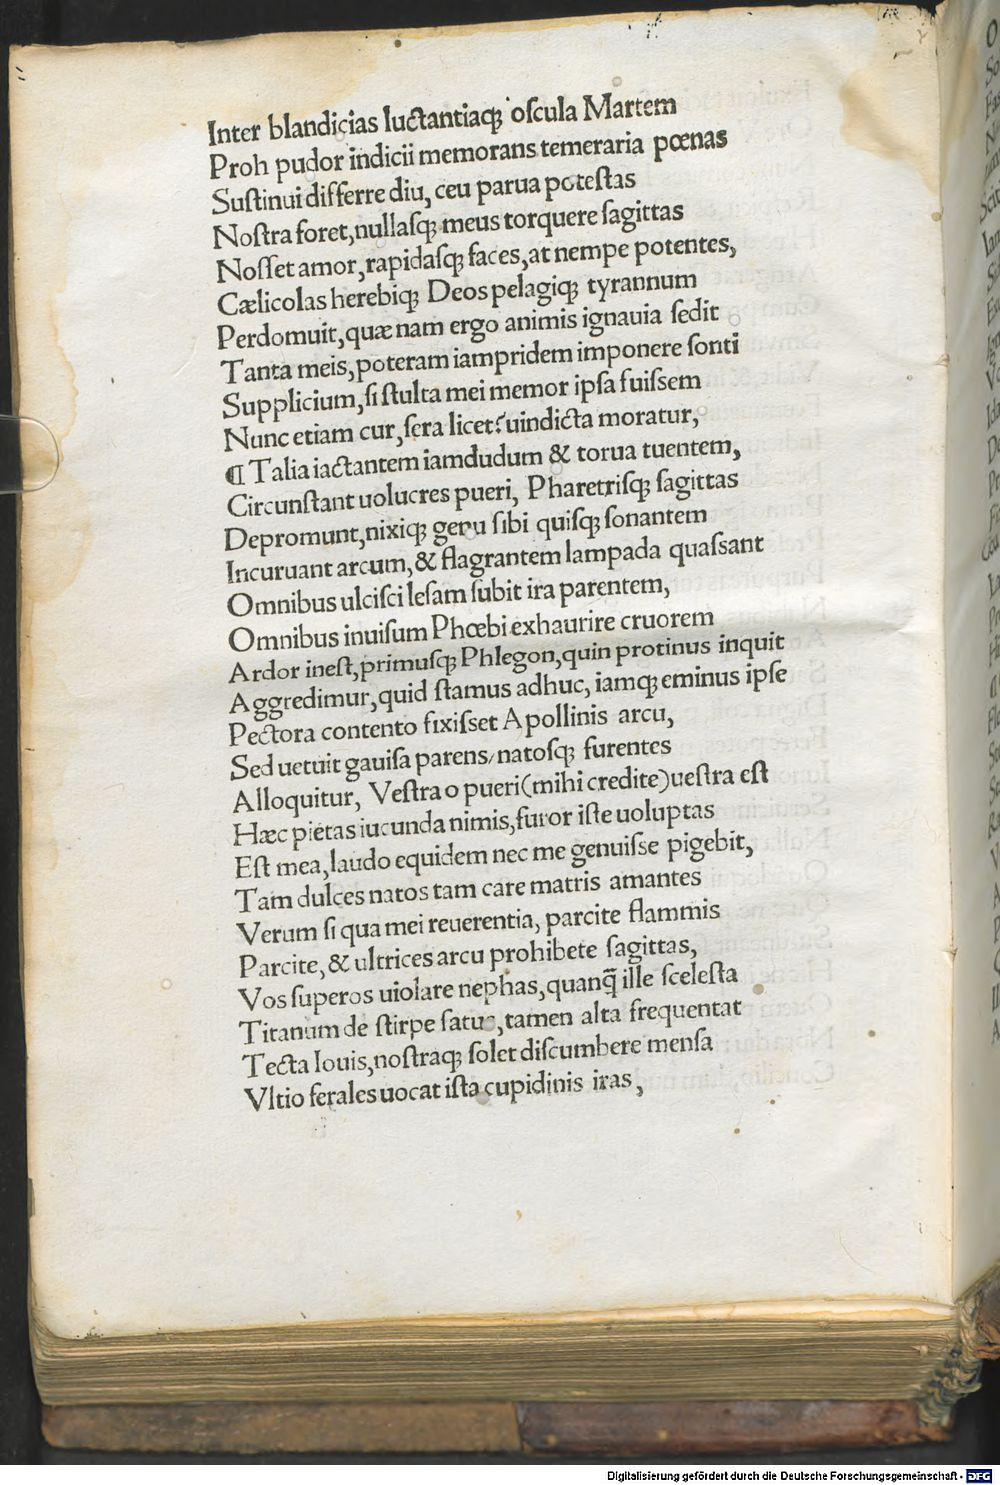 Inter blandicias luctantiaqꝫ oſcula Martem
Proh pudor indicii memorans temeraria pœnas
Suſtinui differre diu, ceu parua poteſtas
Noſtra foret, nullaſqꝫ meus torquere ſagittas
Noſſet amor, rapidaſqꝫ faces, at nempe potentes,
Cælicolas herebiqꝫ Deos pelagiqꝫ tyrannum
Perdomuit, quæ nam ergo animis ignauia ſedit
Tanta meis, poteram iampridem imponere ſonti
Supplicium, ſi ſtulta mei memor ipſa fuiſſem
Nunc etiam cur, ſera licet? uindicta moratur,
¶ Talia iactantem iamdudum & torua tuentem,
Circunſtant uolucres pueri, Pharetriſqꝫ ſagittas
Depromunt, nixiqꝫ genu ſibi quiſqꝫ ſonantem
Incuruant arcum, & flagrantem lampada quaſſant
Omnibus ulciſci leſam ſubit ira parentem,
Omnibus inuiſum Phœbi exhaurire cruorem
Ardor ineſt, primuſqꝫ Phlegon, quin protinus inquit
Aggredimur, quid ſtamus adhuc, iamqꝫ eminus ipſe
Pectora contento fixiſſet Apollinis arcu,
Sed uetuit gauiſa parens/natoſqꝫ furentes
Alloquitur, Veſtra o pueri (mihi credite) ueſtra eſt
Hæc pietas iucunda nimis, furor iſte uoluptas
Eſt mea, laudo equidem nec me genuiſſe pigebit,
Tam dulces natos tam care matris amantes
Verum ſi qua mei reuerentia, parcite flammis
Parcite, & ultrices arcu prohibete ſagittas,
Vos ſuperos uiolare nephas, quanq̃ ille ſceleſta
Titanum de ſtirpe ſatus, tamen alta frequentat
Tecta Iouis, noſtraqꝫ ſolet diſcumbere menſa
Vltio ferales uocat iſta cupidinis iras,
Digitalisierung gefördert durch die Deutsche Forschungsgemeinschaft - DFG